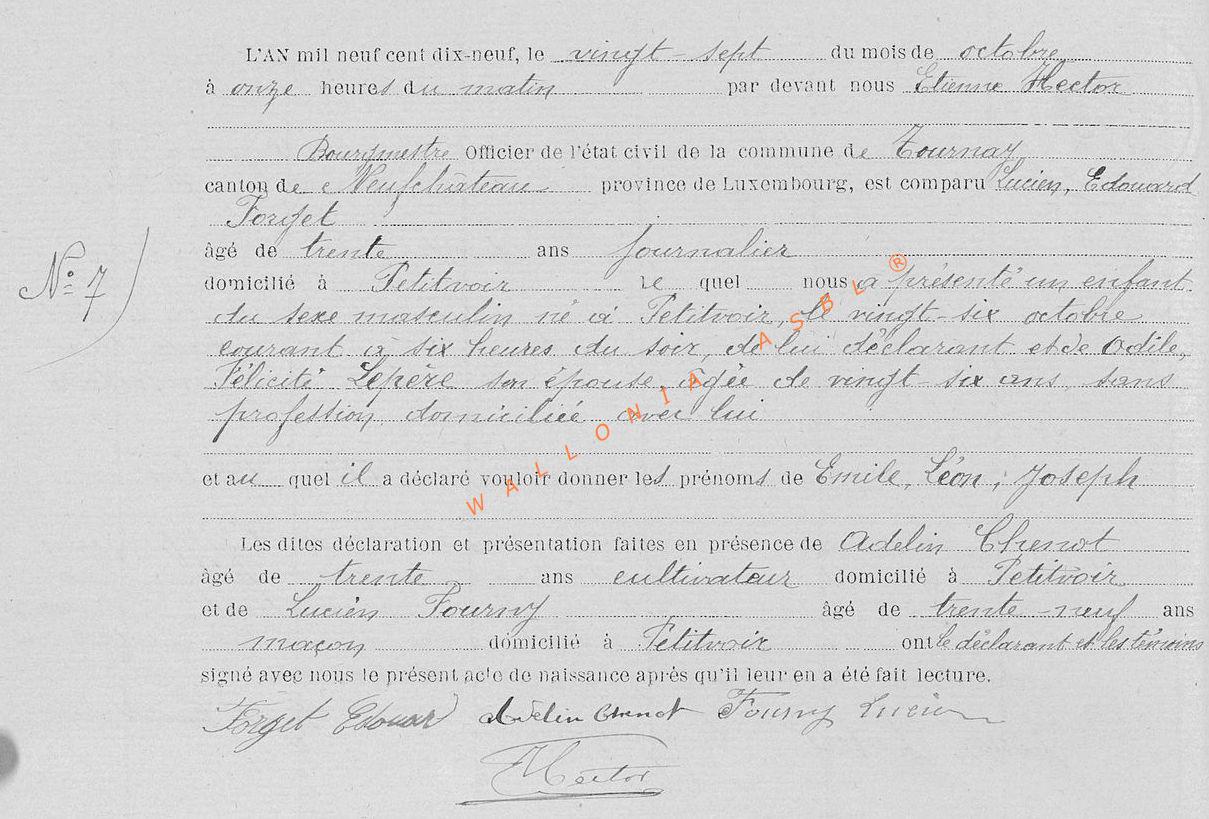 L'AN mil neuf cent dix-neuf, le vingt-sept du mois de octobre
à onze heures du matin par devant nous Etienne Hector
Bourgmestre Officier de l'état civil de la commune de Tournay
canton de Neufchâteau province de Luxembourg, est comparu Lucien, Edouard
Forget
âgé de trente ans journalier
domicilié à Petitvoir le quel nous a présenté un enfant
du sexe masculin né à Petitvoir, le vingt-six octobre
courant à six heures du soir, de lui déclarant et de Odile,
Félicité Lepère son épouse, âgée de vingt-six ans, sans
profession, domiciliée avec lui
et au quel il a déclaré vouloir donner les prénoms de Emile, Léon, Joseph
Les dites déclaration et présentation faites en présence de Adelin Chenot
âgé de trente ans cultivateur domicilié à Petitvoir
et de Lucien Fourny âgé de trente-neuf ans
maçon domicilié à Petitvoir ont le déclarant et les témoins
signé avec nous le présent acte de naissance après qu'il leur en a été fait lecture.
Forget Edouard Adelin Chenot Fourny Lucien
EHector
No 7
WALLONIA ASBL ®